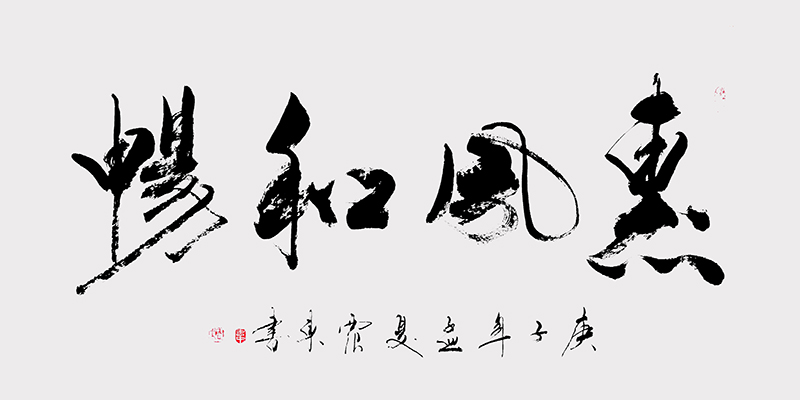 惠風和暢
庚子年孟夏震東書